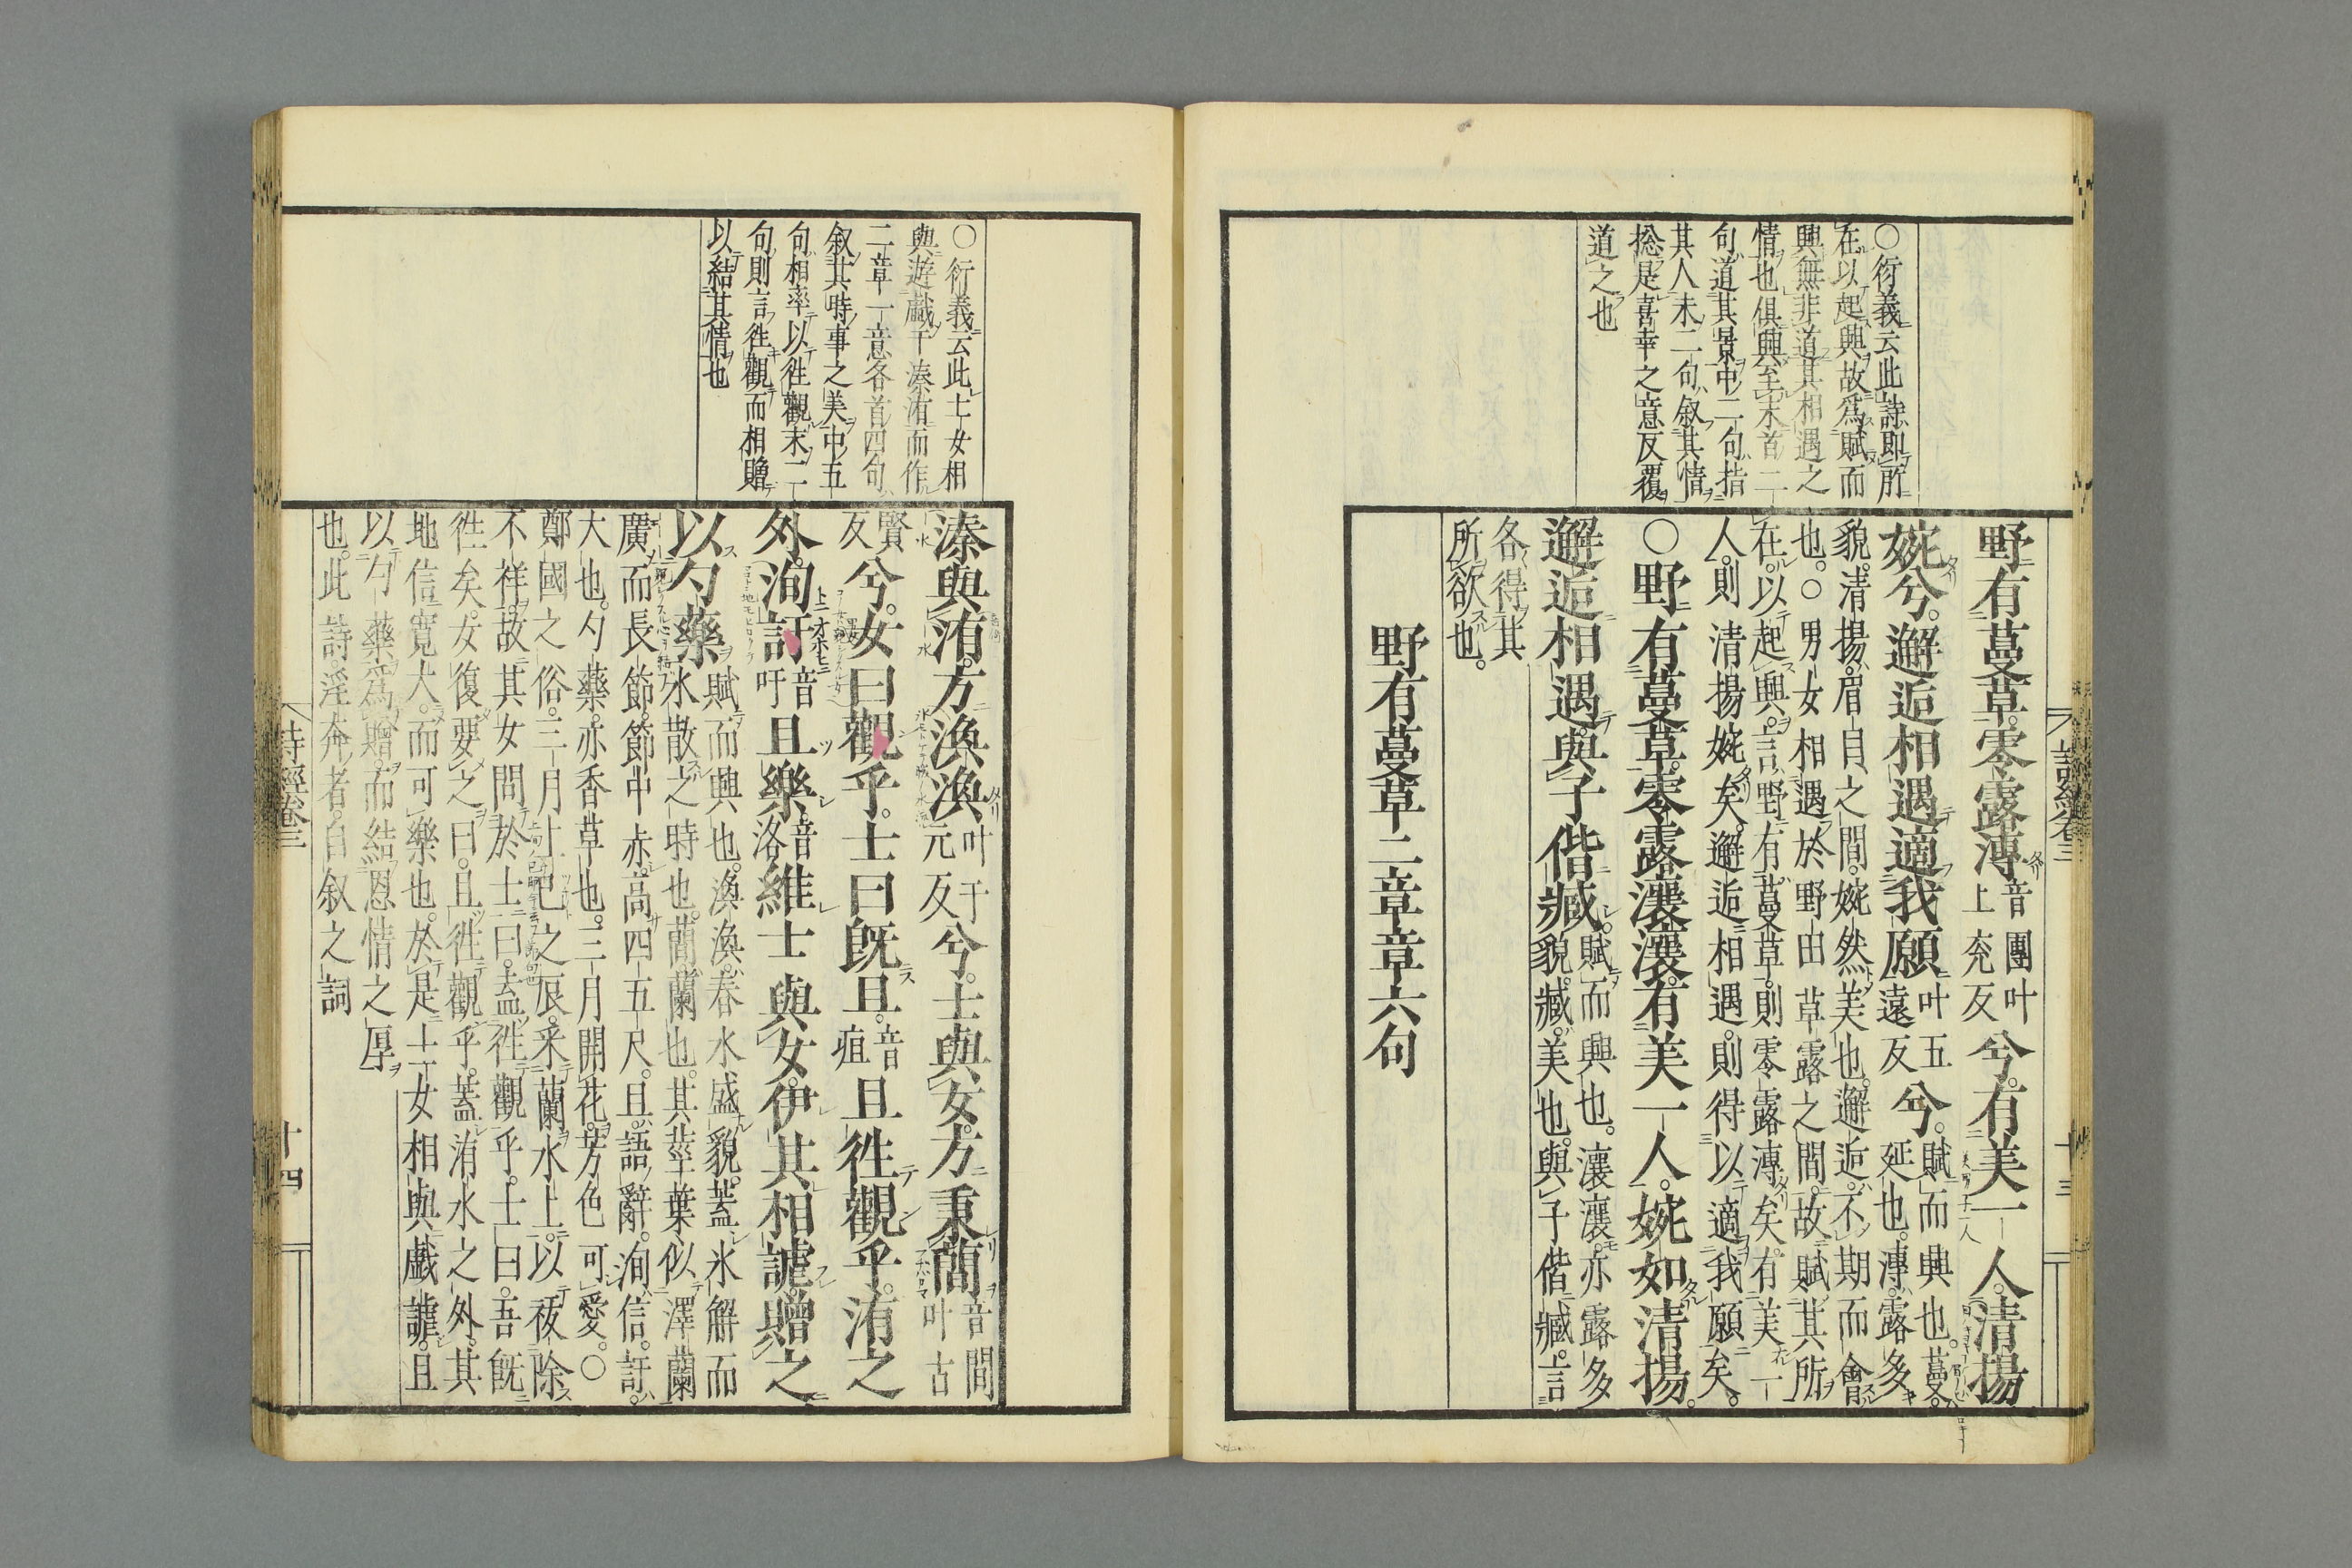 ○衍義云此詩即所
在以起興故爲賦而
興無非道其相遇之
情也俱興至末首二
句道其景中二句指
其人末二句叙其情
捴是喜幸之意反覆
道之也
野有蔓草零露漙音團叶上兖反兮。有美一人。清揚
婉兮。邂逅相遇。適我願叶五遠反兮。賦而興也。蔓。延也。漙。露多
貌。清揚。眉目之間。婉然美也。邂逅。不期而會
也。○男女相遇於野田草露之間。故賦其所
在以起興。言野有蔓草。則零露漙矣。有美一
人。則清揚婉矣。邂逅相遇。則得以適我願矣。
○野有蔓草。零露瀼瀼。有美一人。婉如清揚。
邂逅相遇。與子偕臧。賦而興也。瀼瀼。亦露多貌。臧。美也。與子偕臧。言
各得其
所欲也。
野有蔓草二章章六句
詩經卷三
十三
○衍義云此士女相
與遊戲于溱洧而作
二章一意各首四句
叙其時事之美中五
句相率以徃觀末二
句則言徃觀而相贈
以結其情也
溱與洧。方渙渙叶于元反兮。士與女。方秉蕑音間叶古
賢反兮。女曰觀乎。士曰旣且。音疽且徃觀乎。洧之
外。洵訏音吁且樂。音洛維士與女。伊其相謔。贈之
以勺藥。賦而興也。渙渙。春水盛貌。蓋氷解而
水散之時也。蕑。蘭也。其莖葉似澤蘭
廣而長節。節中赤。高四五尺。且。語辭。洵。信。訏。
大也。勺藥。亦香草也。三月開花。芳色可愛。○
鄭國之俗。三月上巳之辰。采蘭水上。以祓除
不祥。故其女問於士曰。盍徃觀乎。士曰。吾旣
徃矣。女復要之曰。且徃觀乎。蓋洧水之外。其
地信寬大。而可樂也。於是士女相與戲謔。且
以勺藥爲贈。而結恩情之厚
也。此詩淫奔者。自叙之詞
詩經卷三
十四